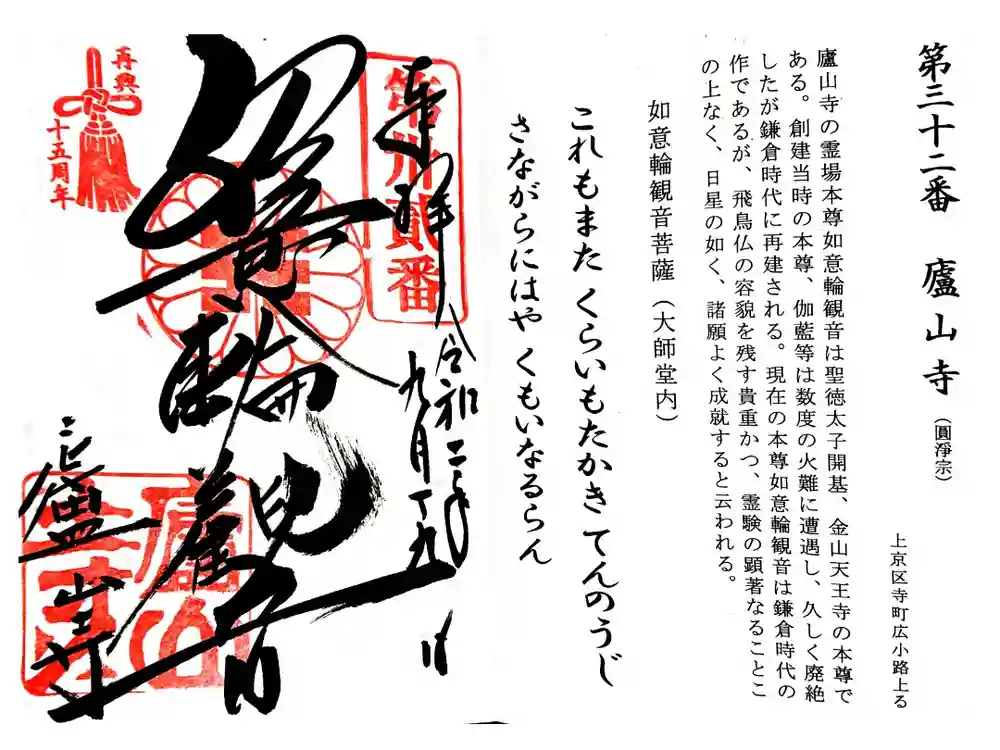 第三十二番 廬山寺（圓淨宗）
上京区寺町広小路上る
廬山寺の霊場本尊如意輪観音は聖徳太子開基、金山天王寺の本尊で
ある。創建当時の本尊、伽藍等は数度の火難に遭遇し、久しく廃絶
したが鎌倉時代に再建される。現在の本尊如意輪観音は鎌倉時代の
作であるが、飛鳥仏の容貌を残す貴重かつ、霊験の顕著なることこ
の上なく、日星の如く、諸願よく成就すると云われる。
如意輪観音菩薩（大師堂内）
これもまた くらいもたかき てんのうじ
さながらにはや くもいなるらん
第卅貳番
奉拝
令和二年
九月十九日
輪観音
廬山寺
再興
十五周年